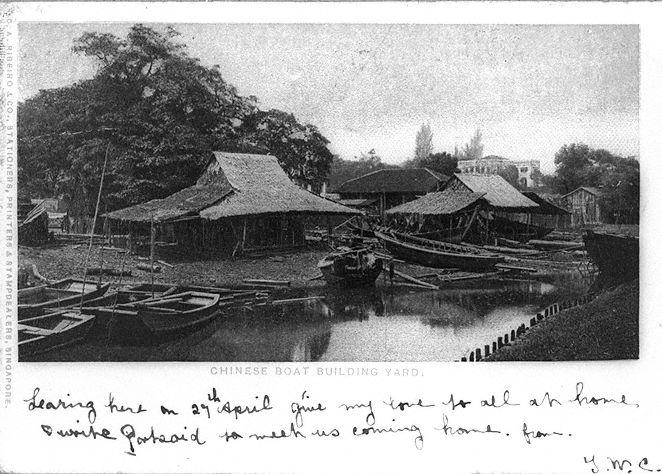 G. A. RIBEIRO & CO., STATIONERS, PRINTERS & STAMPDEALERS, SINGAPORE.
CHINESE BOAT BUILDING YARD.
Learing here on 27th April give my love to all at home
& write Portsaid to meet us coming home. from.
T. W. C.